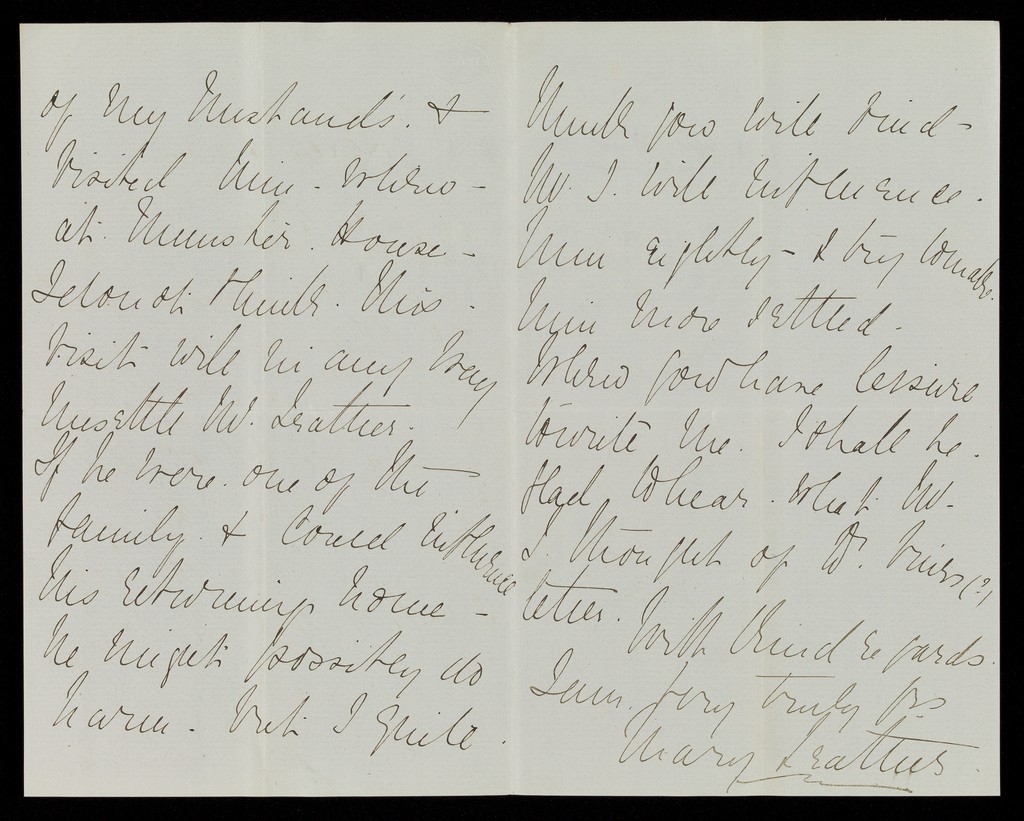 of my Husband's. &
visited him. when -
at. Munster. House -
I do not think. this.
visit will in any way
unsettle Mr. Leather.
If he were. one of the
family. & could influence
his returning home -
he might possibly do
harm. but I quite.
think you will find -
Mr. I. will influence.
him rightly - & try to make.
him more settled.
When you have leisure
to write me. I shall be.
glad to hear. what Mr.
I. thought of Dr. (?)
letter.
With kind regards.
I am. very truly yrs
Mary Leather